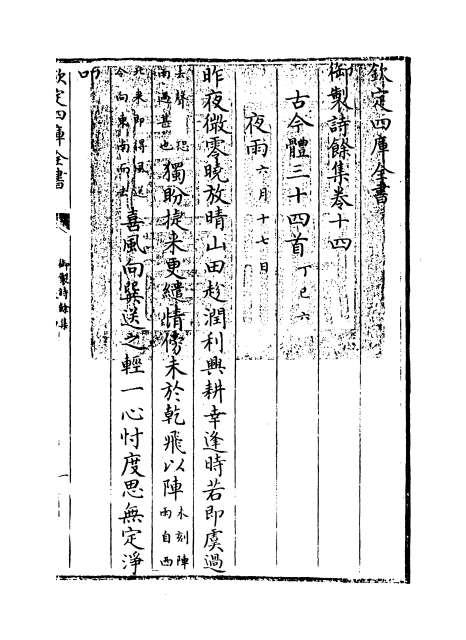 欽定四庫全書
御製詩餘集卷十四
古今體三十四首 丁巳六
夜雨 六月十七日
昨夜微零曉放晴山田趁潤利興耕幸逢時若即虞過
去聲恐雨過甚也獨盼捷來更繾情傍未於乾飛以陣未刻陣雨自西
北來即得風送今向東南而去喜風向巽送之輕一心忖度思無定淨
叩
欽定四庫全書
御製詩餘集
一